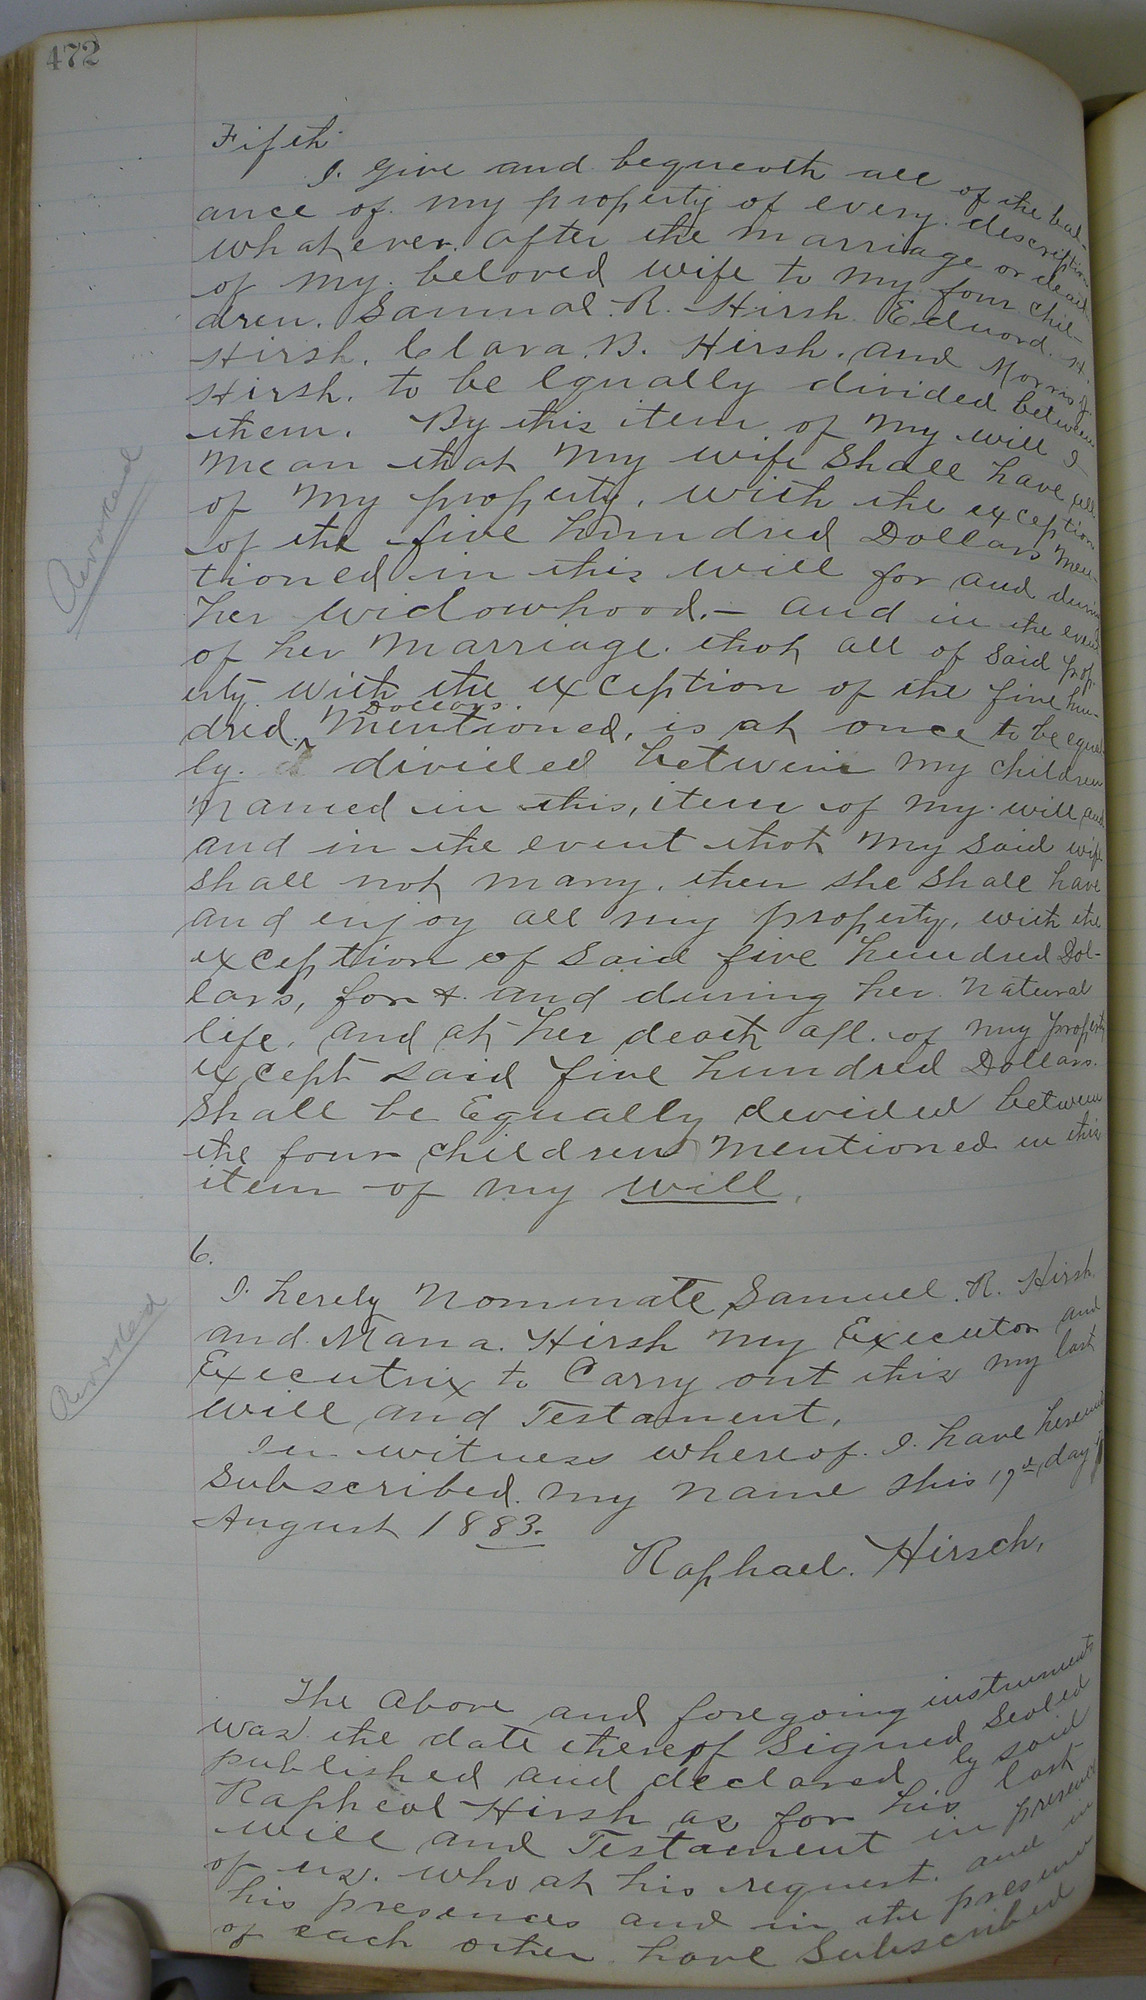 472
Fifth
I. give and bequeath all of the bal-
ance of. my property of every. description
whatever. after the marriage or death
of my. beloved wife to my four chil-
dren. Samual. R. Hirsh Edward. H.
Hirsh. Clara. B. Hirsh. and Morris
Hirsh. to be Equally divided between
them. By this item of my will I
mean that my wife shall have all
of my property. with the exception
of the five hundred Dollars men-
tioned in this will for and during
her widowhood.- and in the event
of her marriage. that all of said prop-
erty with the exception of the five hun-
Dollars.
dred ^ mentioned, is at once to be equal-
ly. divided between my children
named in this, item of my will and
and in the event that my said wife
shall not marry. then she shall have
and enjoy all my property, with the
exception of said five hundred Dol-
lars, for &. and during her natural
life. and at her death all. of my property
except said five hundred Dollars.
shall be Equally devided between
the four children mentioned in this
item of my will.
Revoked
6.
I. herely nominate Samuel. R. Hirsh.
and. Mana. Hirsh my Executor and
Executrix to Carry out this my last
will and Testament.
In witness whereof. I. have hereunto
Subscribed. my name this 17th day of
August 1883.
Revoked
Raphael. Hirsch.
The above and foregoing instruments
was the date thereof Signed Sealed
published and declared by said
Rapheal Hirsh as for his last
will and Testament in presence
of us. who at his request. and in
his presences and in the presence
of each other have Subscribed